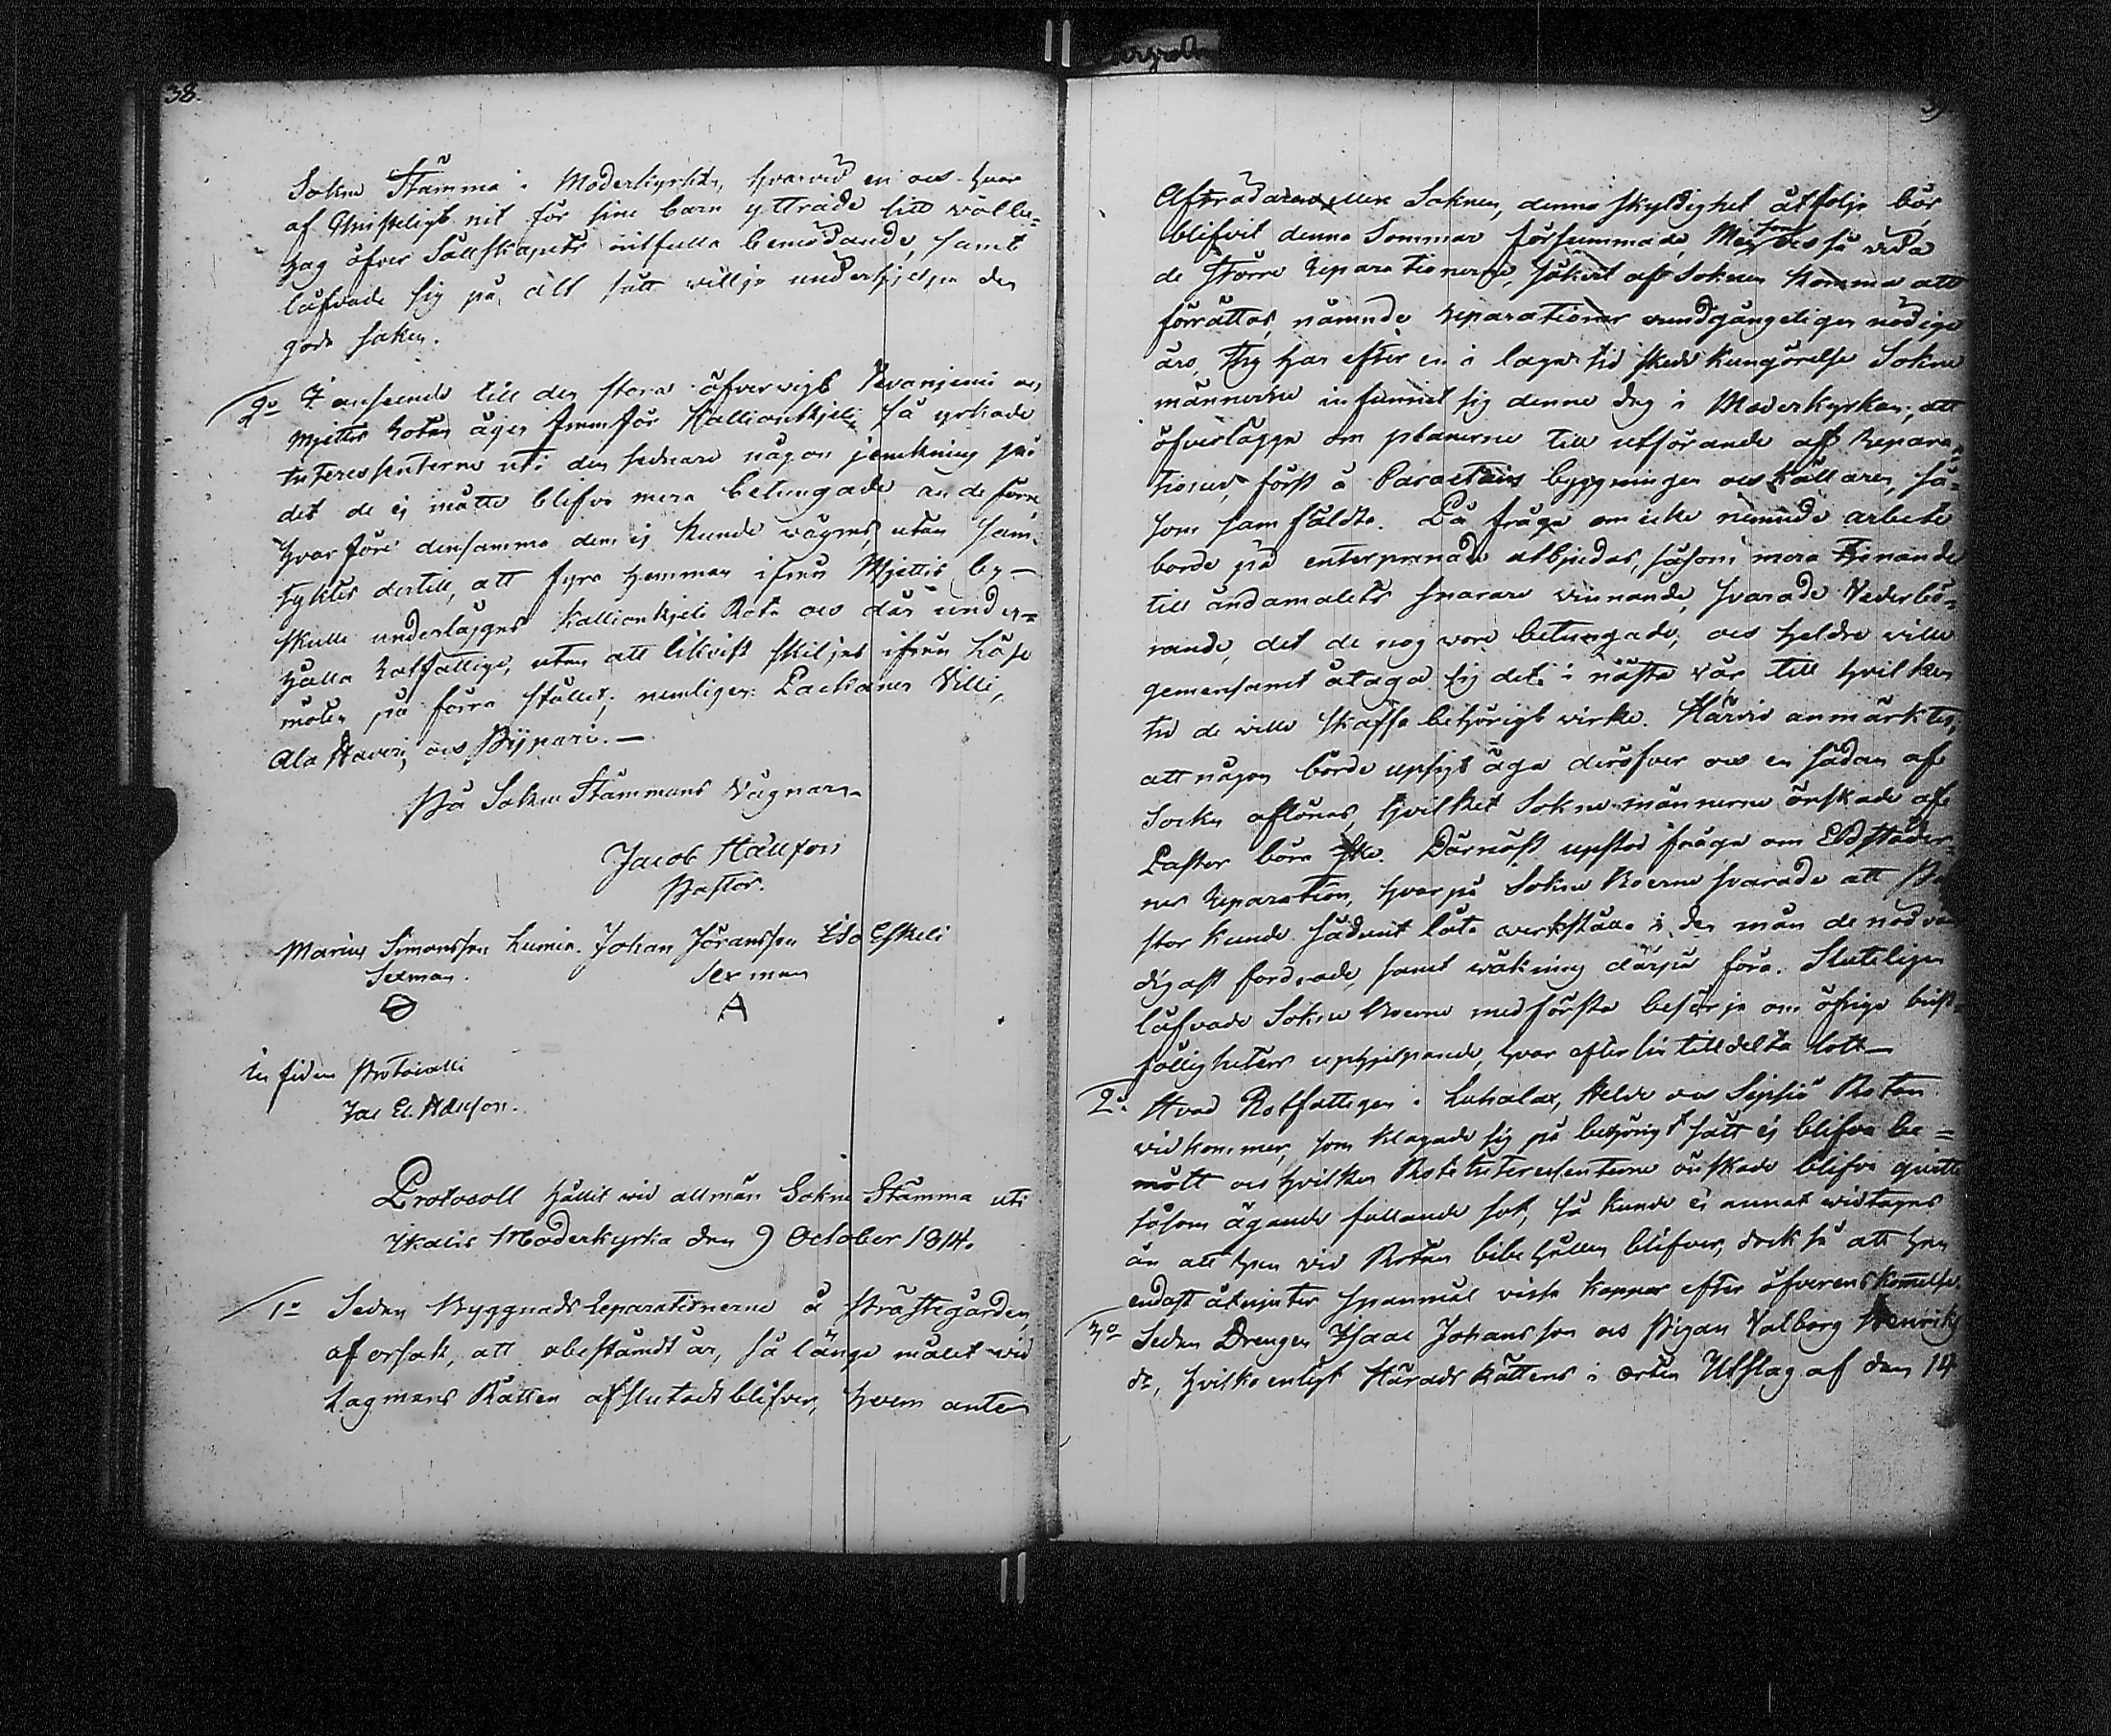 38.
Sokne Stämma i Moderkyrkan, hvarvid en och hvar
af Christeligt nit för sine barn yttrade sitt välbe-
hag öfver Sällskapets nitfulla bemödande, samt
låfvade sig på alt sätt villja understjelpa den
goda saken.
2o I anseende till den stora öfvervigt Kovanjemi och
Mjettis Roten äger framför Kallionkjeli, så yrkade
Interessenterne uti den sednare någon jemkning på
det de ej måtte blifva mera betungade än de förre
hvarföre densamma dem ej kunde vägras, utan sam-
tyktes dertill, att fyra hemman ifrån Mjettis by
skulle underläggas Kallionkjeli Rote och där under-
hålla Rotfattige, utan att likvist skiljas ifrån Läse
möten på förra stället, nemligen: Packanen Villi,
Ala Haveri, och Pijpari. —
På Sokne Stämmans Vägnar
Jacob Hællfors
Pastor.
Marius Simonsson Lumia. Johan Jöransson Iso Eskeli
Sexman. Sexman
A
In fidem Protocolli
Protocoll hållit vid allmän Sokne Stämma uti
Ikalis Moderkyrka den 9 October 1814.
1o Sedan Byggnads Reparationerne å Prästegården,
af orsak, att obestämdt är, så länge målet vid
Lagmans Rätten afslutadt blifver, hvem anten
Afträdaren eller Soknen, denna skyldighet åtfölja bör
blifvit denna Sommar försummade, Men som och så vida
de större Reparationerne, säkert af Soknen komma att
förrättas, nämnde Reparationer oundgängeligen nödige
äro, Thy har efter en i laga tid skedd kungörelse Sokne
männerne infunnit sig denne dag i Moderkyrkan, att
öfverlägga om planerne till utförande af Repara-
tioner, först å byggningen och Källaren, så-
som samfäldte. På fråga om icke nämnde arbete
borde på enterprenad utbjudas, såsom mera tjenande
till ändamålets snarare vinnande, svarade Vederbö-
rande, det de nog vore betungade, och heldre ville
gemensamt åtaga sig det i nästa vår till hvilken
tid de ville skaffa behörigt virke. Härvid anmärktes,
att någon borde upsigt äga deröfver och en sådan af
Socken aflönas, hvilket Sokne männerne önskade af
Pastor böra ske. Därnäst upstod fråga om Eldstäder-
nes Reparation, hvarpå Sokne Boerne svarade att Pa
stor kunde sådant låta verkställa i den mån de nödvän
digast fordrade, samt räkning därpå föra. Sluteligen
låfvade Sokne Boerne med första besörja om öfrige brist-
fälligheters uphjelpande, hvar efter sin tilldelta lott —
2o. Hvad Rotfattigen i Luhalax, och Sipsiö Roten
vidkommer, som klagade sig på behörigt sätt ej blifva be-
mött och hvilken Rote Interessenterne önskade blifva qvitte
såsom ägande fallande sot, så kunde ej annat vidtagas
än att hon vid Roten bibehållen blifver, dock så att hon
endast åtnjuter spannmål vissa kappar efter öfverenskommelse.
3o Sedan Drengen Isaac Johansson och Pigan Valborg Henriks
dr, hvilka enligt Härads Rättens i orten Utslag af den 14